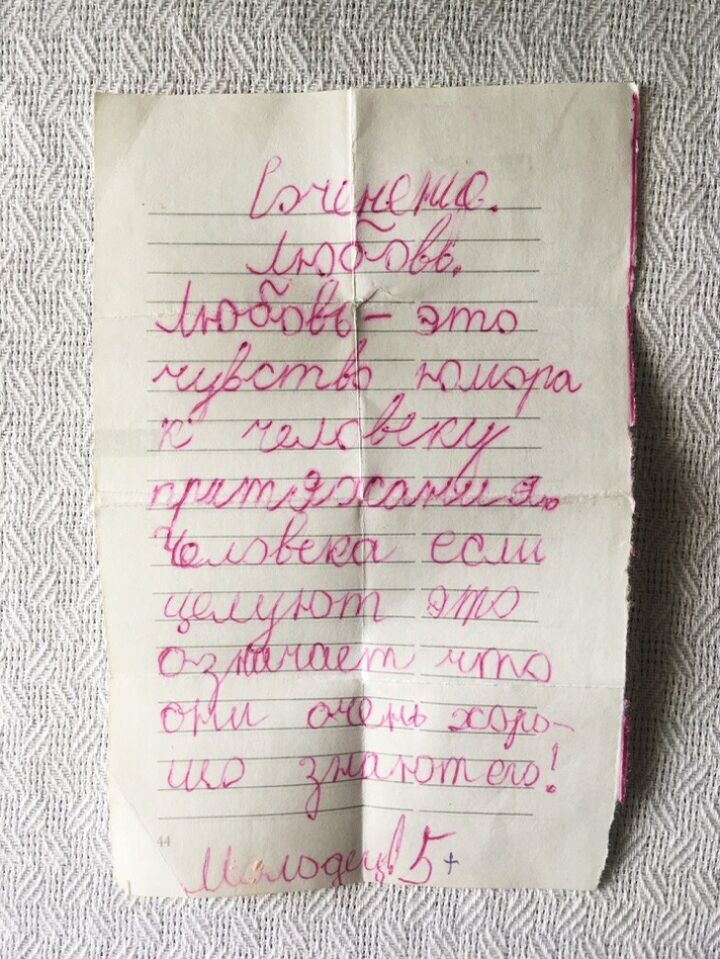 Сочинение.
Любовь.
Любовь - это
чувство юмора
к человеку
притяжания.
Человека если
целуют это
означает что
они очень хоро-
шо знают его!
44
Молодец! 5+